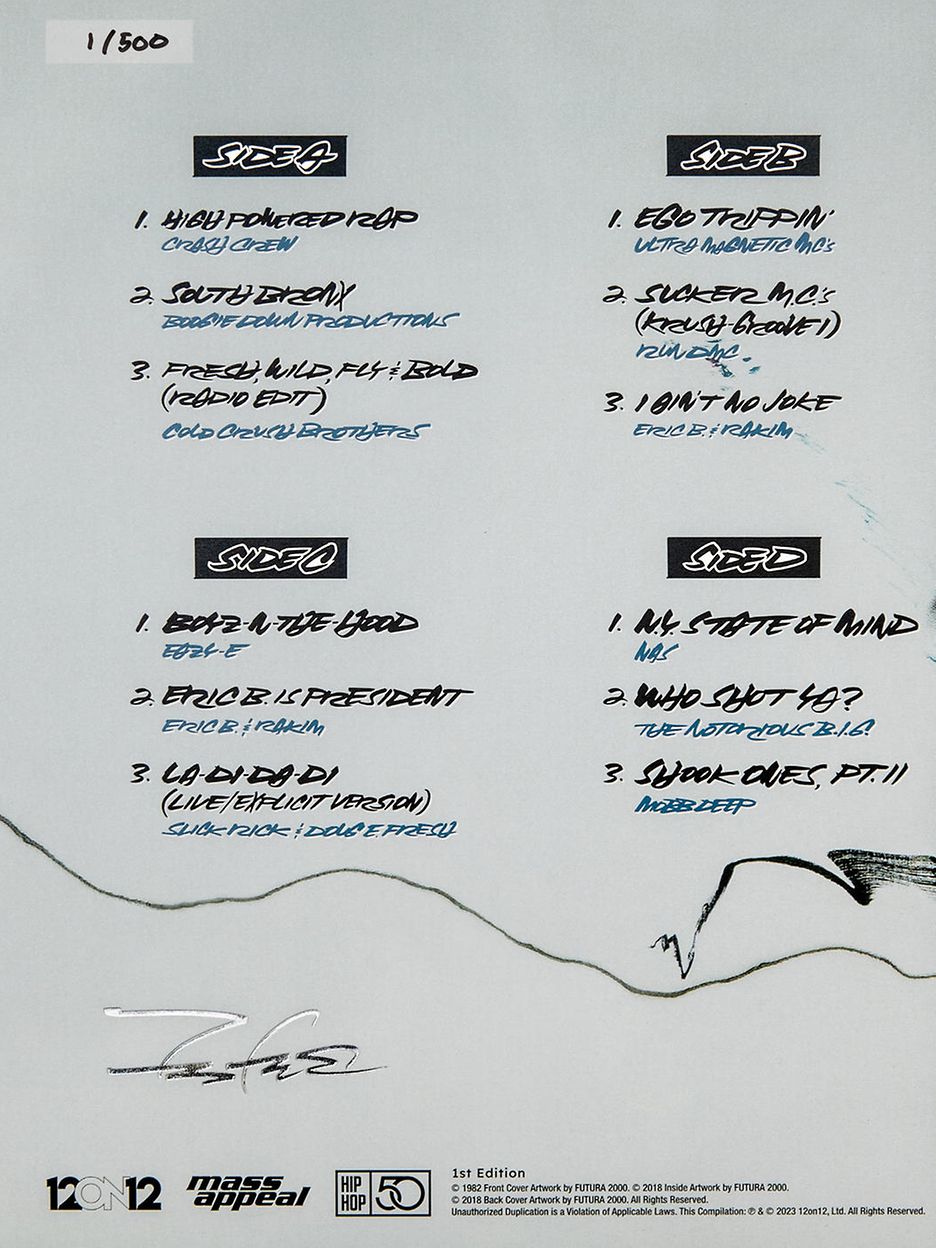 1/500
SIDE A
1. HIGH POWERED RAP
CRASH CREW
2. SOUTH BRONX
BOOGIE DOWN PRODUCTIONS
3. FRESH, WILD, FLY & BOLD
(RADIO EDIT)
COLD CRUSH BROTHERS
SIDE B
1. EGO TRIPPIN'
ULTRA MAGNETIC MC's
2. SUCKER M.C.'s
(KRUSH-GROOVE 1)
RUN DMC.
3. I AIN'T NO JOKE
ERIC B. & RAKIM
SIDE C
1. BOYZ-N-THE-HOOD
EAZY-E
2. ERIC B. IS PRESIDENT
ERIC B. & RAKIM
3. LA-DI-DA-DI
(LIVE/EXPLICIT VERSION)
SLICK RICK & DOUG E. FRESH
SIDE D
1. N.Y. STATE OF MIND
NAS
2. WHO SHOT YA?
THE NOTORIOUS B.I.G.
3. SHOOK ONES, PT. II
MOBB DEEP
12ON12
mass appeal
HIP HOP 50
1st Edition
© 1982 Front Cover Artwork by FUTURA 2000. © 2018 Inside Artwork by FUTURA 2000.
© 2018 Back Cover Artwork by FUTURA 2000. All Rights Reserved.
Unauthorized Duplication is a Violation of Applicable Laws. This Compilation: ℗ & © 2023 12on12, Ltd. All Rights Reserved.